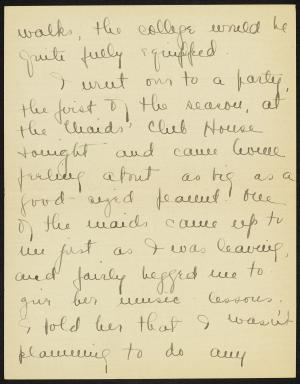 walks, the college would be
quite fully equipped.
I went over to a party,
the first of the season, at
the Maids' Club House
tonight and came home
feeling about as big as a
good-sized peanut. One
of the maids came up to
me just as I was leaving,
and fairly begged me to
give her music lessons.
I told her that I wasn't
planning to do any